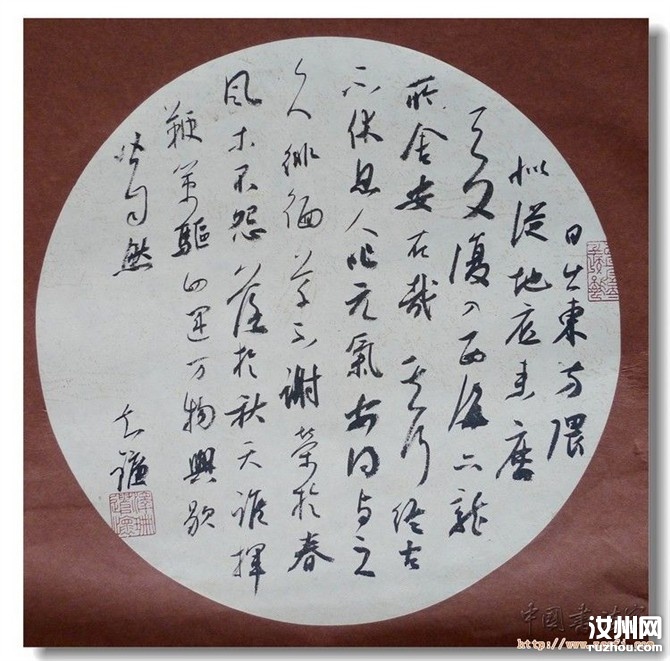 日出東方隈
似從地底來歷
天又復入西海六龍
所舍安在哉其行終古
不休息人非元氣安得與之
久徘徊草不謝榮於春
風木不怨落於秋天誰揮
鞭策驅四運萬物興歇
皆自然
謙
汝州网
ruzhou.com